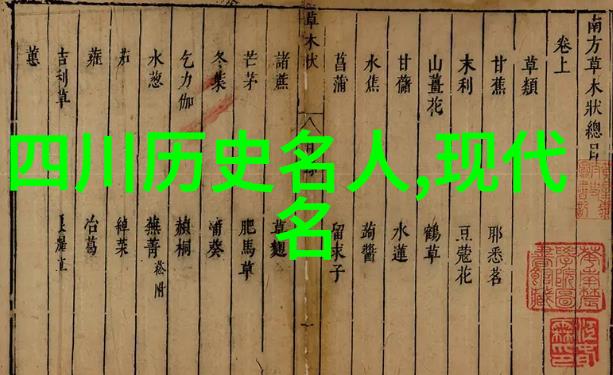 四川历史名人,现代名
南方草木狀總目
卷上
草類
甘蕉 耶悉茗
末利 豆蔻花
山薑花 鶴草
甘藷 水蓮
水蕉 蒟醬
菖蒲 留求子
草木狀
諸蔗 草麴
芒茅 肥馬草
冬葉 蒲葵
乞力伽 赬桐
水葱 蕪菁 菘附
茄 綽菜
蕹 冶葛
吉利草
蕙